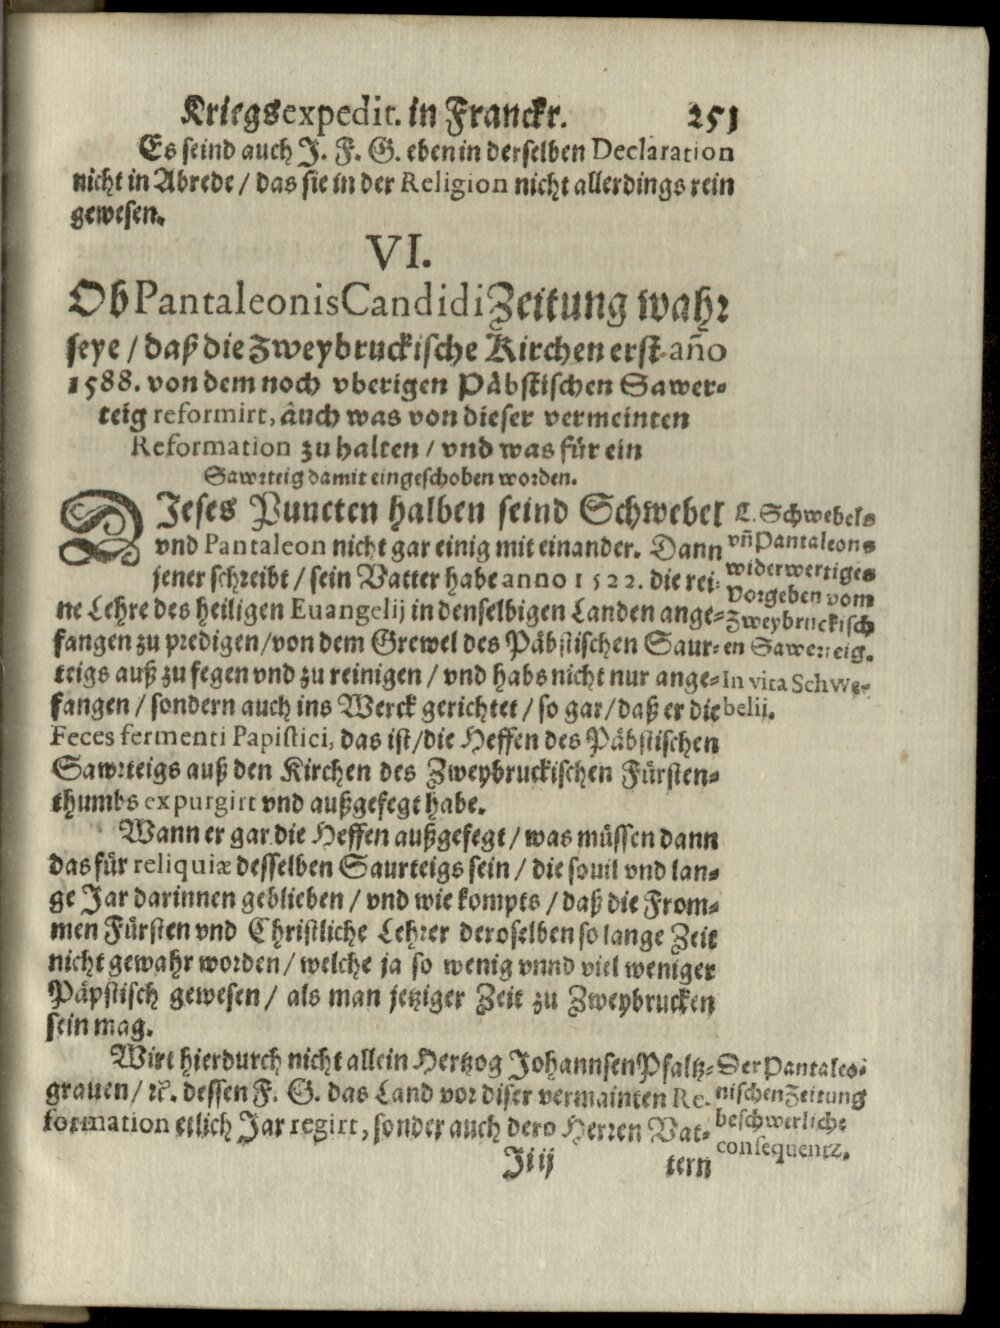 Kriegsexpedit. in Franckr. 251
Es seind auch J. F. G. eben in derselben Declaration
nicht in Abrede / das sie in der Religion nicht allerdings rein
gewesen.
VI.
Ob Pantaleonis Candidi Zeitung wahr
seye / daß die Zweybruckische Kirchen erst año
1588. von dem noch vberigen Påbstischen Sawer-
teig reformirt, auch was von dieser vermeinten
Reformation zu halten / vnd was für ein
Sawrteig damit eingeschoben worden.
DJeses Puncten halben seind Schwebel
vnd Pantaleon nicht gar einig mit einander. Dann
jener schreibt / sein Vatter habe anno 1522. die rei-
ne Lehre des heiligen Euangelij in denselbigen Landen ange-
fangen zu predigen / von dem Grewel des Påbstischen Saur-
teigs auß zu fegen vnd zu reinigen / vnd habs nicht nur ange-
fangen / sondern auch ins Werck gerichtet / so gar / daß er die
Feces fermenti Papistici, das ist / die Heffen des Påbstischen
Sawrteigs auß den Kirchen des Zweybruckischen Fürsten-
thumbs expurgirt vnd außgefegt habe.
C. Schwebels
vñ Pantaleons
widerwertiges
Vorgeben vom
Zweybruckisch
en Sawerteig.
In vita Schwe-
belii.
Wann er gar die Heffen außgefegt / was müssen dann
das für reliquiæ desselben Saurteigs sein / die souil vnd lan-
ge Jar darinnen geblieben / vnd wie kompts / daß die From-
men Fürsten vnd Christliche Lehrer deroselben so lange Zeit
nicht gewahr worden / welche ja so wenig vnnd viel weniger
Påpstisch gewesen / als man jetziger Zeit zu Zweybrucken
sein mag.
Wirt hierdurch nicht allein Hertzog Johannsen Pfaltz-
grauen / ꝛc. dessen F. G. das Land vor diser vermainten Re-
formation etlich Jar regirt, sonder auch dero Herren Vat-
Der Pantaleo-
nischen Zeitung
beschwerliche
consequentz.
Jiij tern